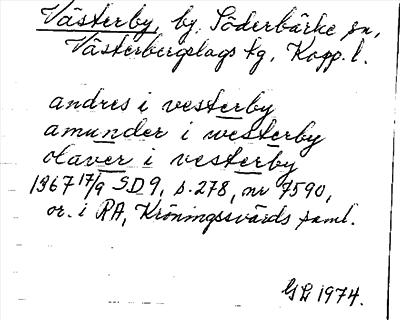 Västerby, by, Söderbärke sn,
Västerbergslags tg, Kopp. l.
andres i vesterby
amunder i westerby
olaver i vesterby
1367 17/9 SD 9, s. 278, nr 7590,
or. i RA, Kröningssvärds saml.
GB 1974.